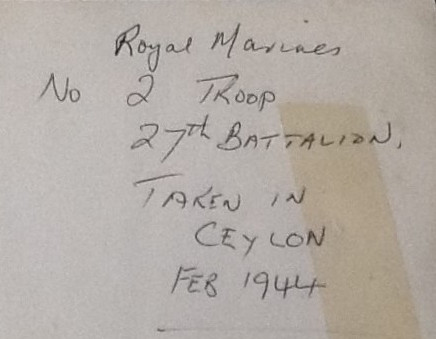 Royal Marines
No 2 TROOP
27th BATTALION.
TAKEN IN
CEYLON
FEB 1944